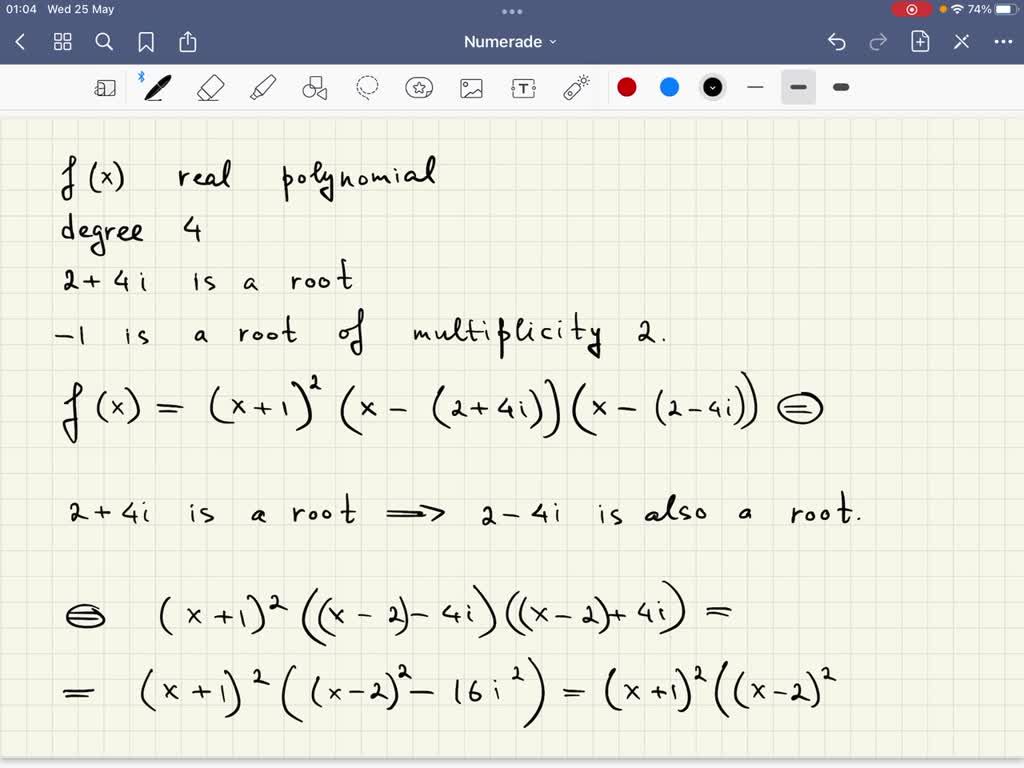 01:04 Wed 25 May 74%
Numerade
f(x) real polynomial
degree 4
2+4i is a root
-1 is a root of multiplicity 2.
f(x) = (x+1)² (x - (2+4i))(x - (2-4i)) =
2+4i is a root ⟹ 2-4i is also a root.
= (x+1)² ((x-2)-4i)((x-2)+4i) =
= (x+1)² ((x-2)² - 16i²) = (x+1)² ((x-2)²